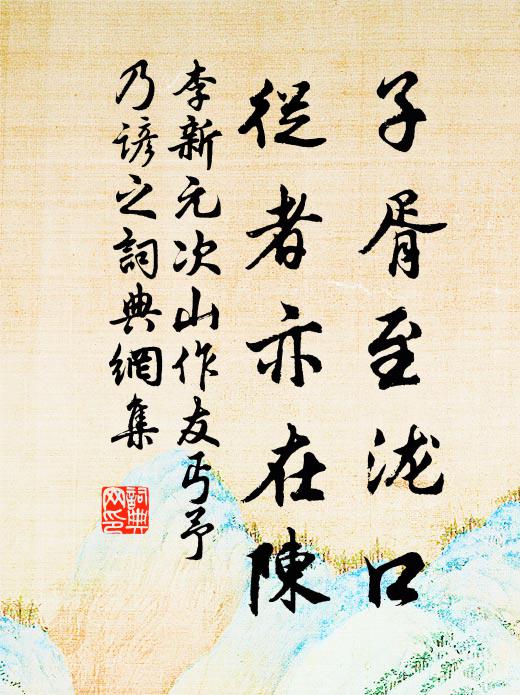 子胥至瀧口
從者亦在陳
李新元次山作友丐予
乃諺之詞典網集
詞典
网印